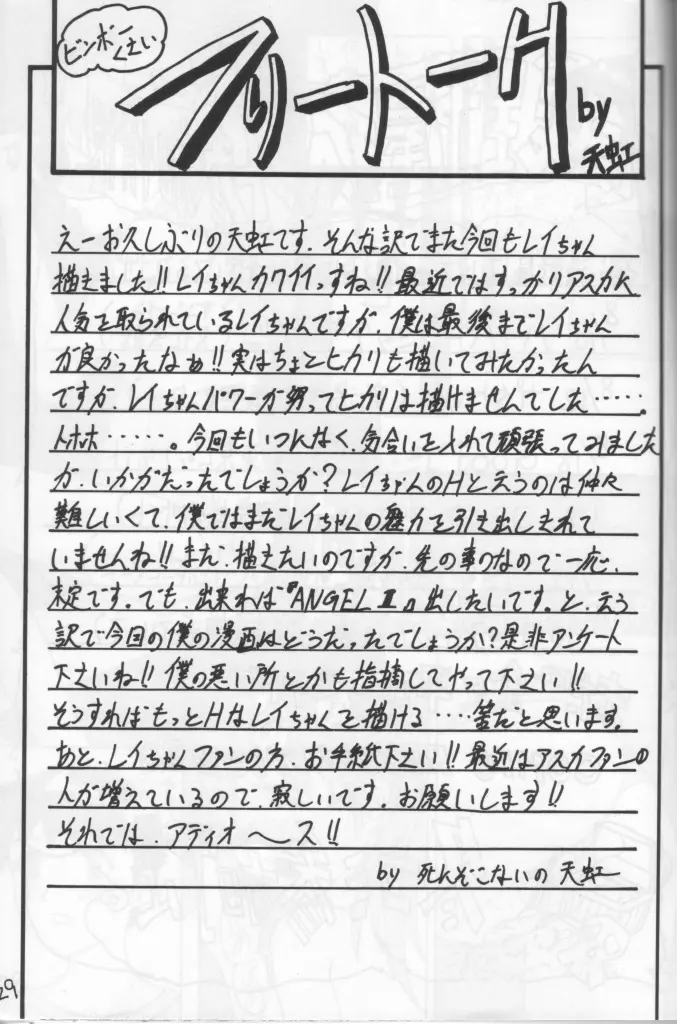 ビンボー
くさい
フリートーH
by
天虹
えーお久しぶりの天虹です。そんな訳でまた今回もレイちゃん
描きました!!レイちゃんカワイイっすね!!最近ではすっかりアスカに
人気を取られているレイちゃんですが、僕は最後までレイちゃん
が良かったなぁ!!実はちょとヒカリも描いてみたかったん
ですが、レイちゃんパワーが勝ってヒカリは描けませんでした……。
トホホ……。今回もいつになく、気合いを入れて頑張ってみました
が、いかがだったでしょうか?レイちゃんのHと云うのは仲々
難しいくて、僕ではまだレイちゃんの魅力を引き出しきれて
いませんね!!まだ、描きたいのですが、先の事なので一応、
未定です。でも、出来れば『ANGEL II』出したいです。と、云う
訳で今回の僕の漫画はどうだったでしょうか?是非アンケート
下さいね!!僕の悪い所とかも指摘してやって下さい!!
そうすればもっとHなレイちゃんを描ける‥‥筈だと思います。
あと、レイちゃんファンの方、お手紙下さい!!最近はアスカファンの
人が増えているので、寂しいです。お願いします!!
それでは、アディオ〜ス!!
by 死んぞこないの 天虹
29